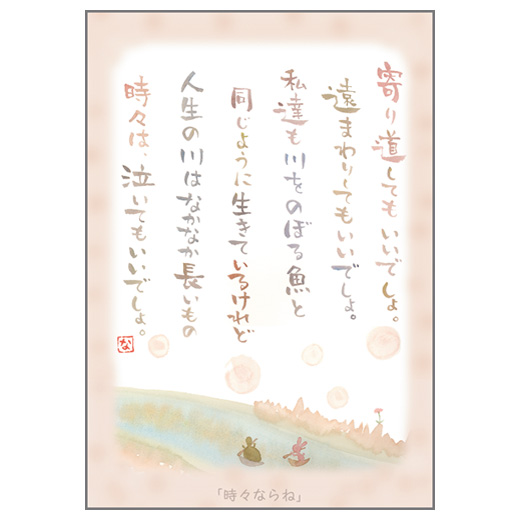 寄り道してもいいでしょ。
遠まわりしてもいいでしょ。
私達も川をのぼる魚と
同じように生きているけれど
人生の川はなかなか長いもの
時々は、泣いてもいいでしょ。
な
「時々ならね」